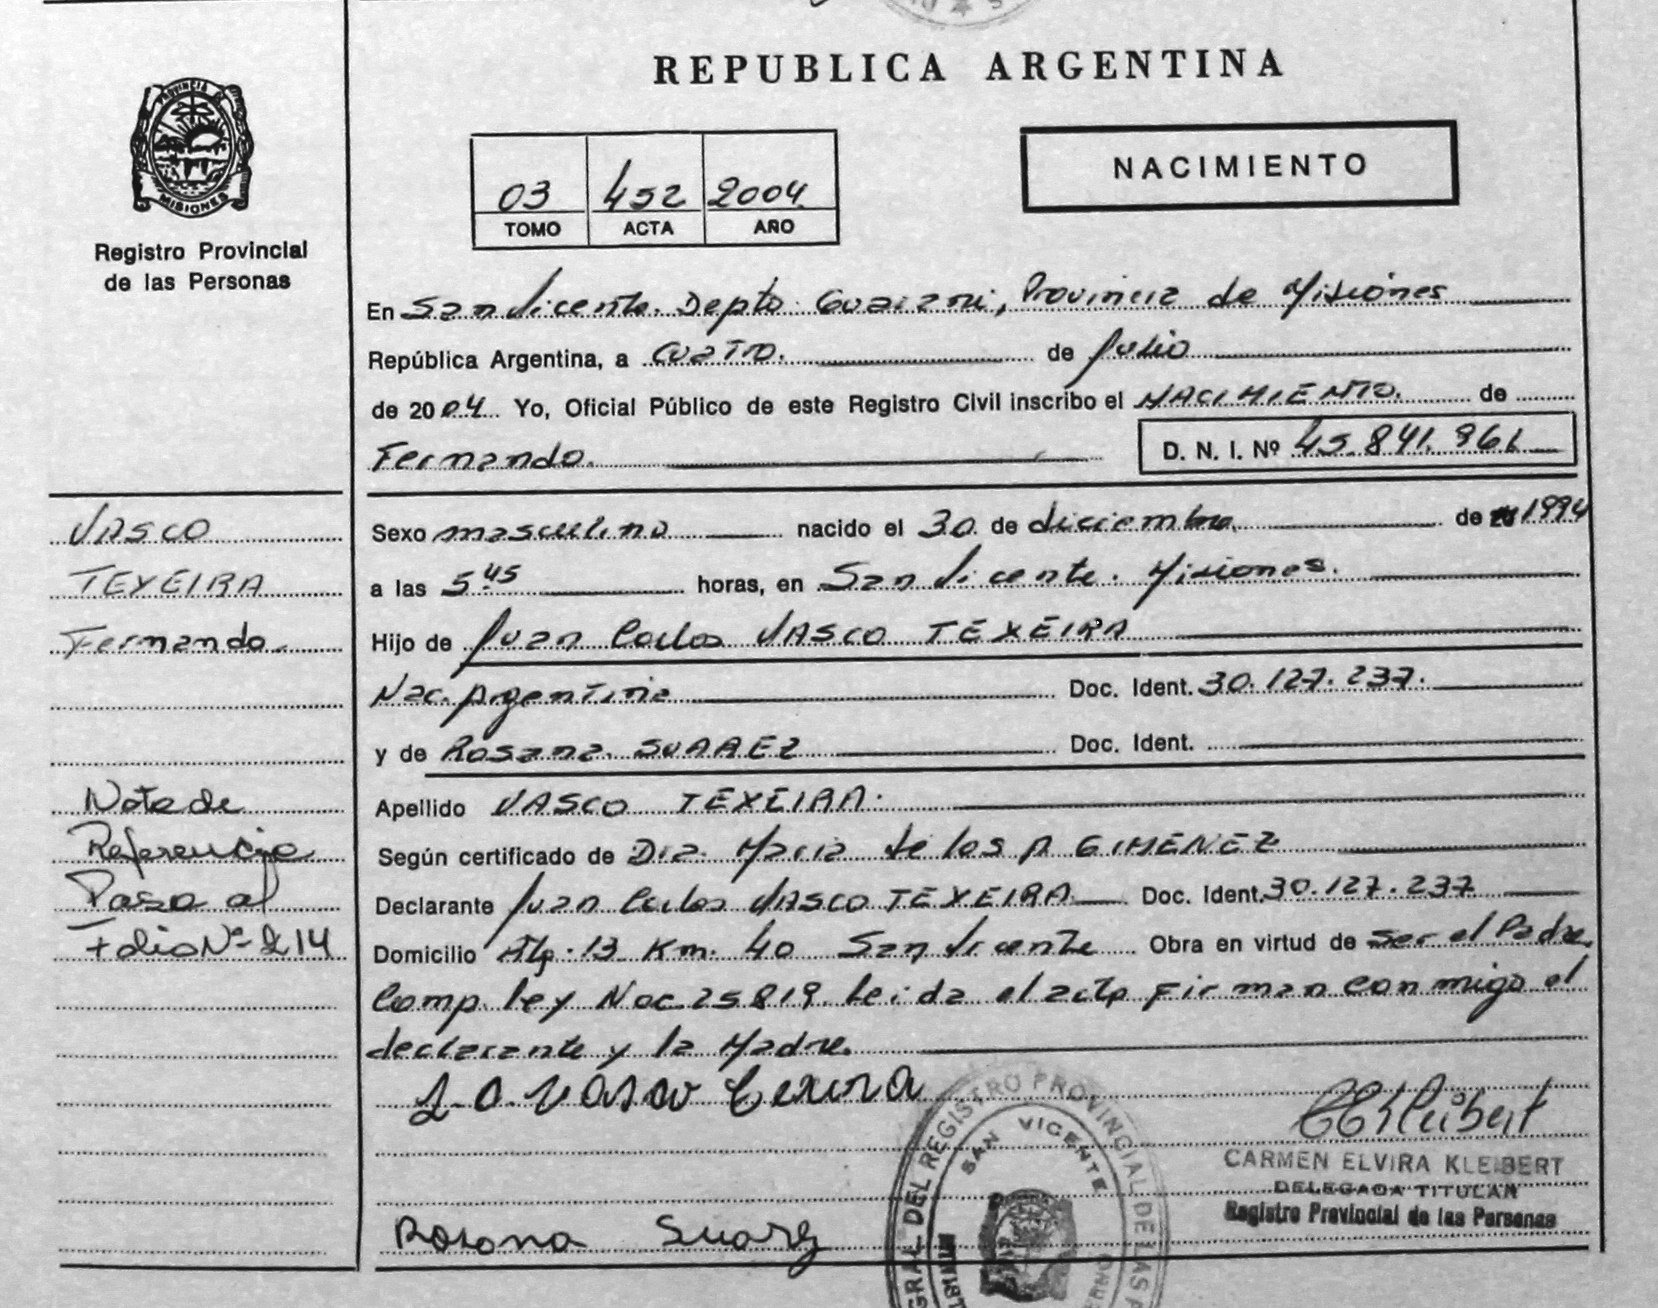 REPUBLICA ARGENTINA
PROVINCIA DE
MISIONES
Registro Provincial
de las Personas
03 452 2004
TOMO ACTA AÑO
NACIMIENTO
En San Vicente. Depto Guarani, Provincia de Misiones
República Argentina, a cuatro. de Julio
de 2004 Yo, Oficial Público de este Registro Civil inscribo el NACIMIENTO. de
Fernando. D. N. I. Nº 45.841.961
VASCO
TEXEIRA
Fernando.
Nota de
Referencia
Pasa al
Folio Nº 214
Sexo masculino nacido el 30 de diciembre de 1994
a las 5 45 horas, en San Vicente. Misiones.
Hijo de Juan Carlos VASCO TEXEIRA
Nac. Argentina Doc. Ident. 30.127.237.
y de Rosana. SUAREZ Doc. Ident.
Apellido VASCO TEXEIRA.
Según certificado de Dra. Maria de los A GIMENEZ
Declarante Juan Carlos VASCO TEXEIRA Doc. Ident. 30.127.237
Domicilio 13 Km. 40 San Vicente Obra en virtud de ser el Padre
Comp. ley Nac 25819. Leida el acta firman conmigo el
declarante y la Madre.
Vasco Texeira
CKleibert
CARMEN ELVIRA KLEIBERT
DELEGADA TITULAR
Registro Provincial de las Personas
Rosana Suarez
GRAL DEL REGISTRO PROVINCIAL DE LAS P
SAN VICENTE